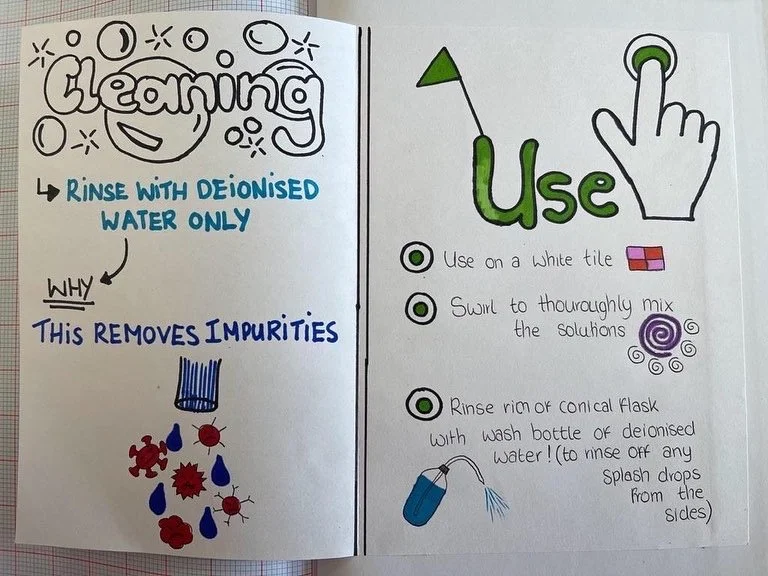 Cleaning
↳ RINSE WITH DEIONISED
WATER ONLY
WHY
THIS REMOVES IMPURITIES
Use
Use on a white tile
Swirl to thouroughly mix
the solutions
Rinse rim of conical flask
with wash bottle of deionised
water! (to rinse off any
splash drops
from the
sides)